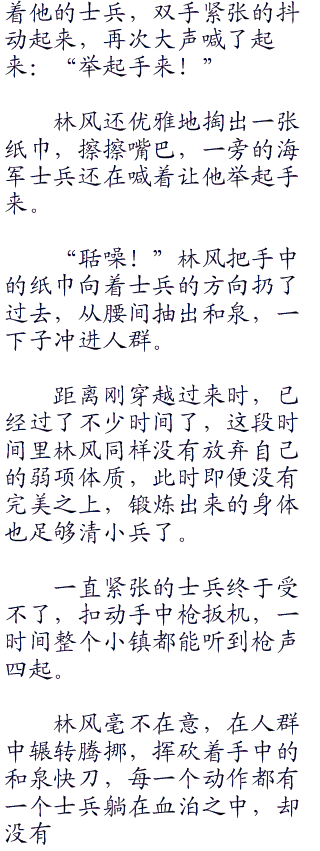 着他的士兵，双手紧张的抖
动起来，再次大声喊了起
来：“举起手来！”
林风还优雅地掏出一张
纸巾，擦擦嘴巴，一旁的海
军士兵还在喊着让他举起手
来。
“聒噪！”林风把手中
的纸巾向着士兵的方向扔了
过去，从腰间抽出和泉，一
下子冲进人群。
距离刚穿越过来时，已
经过了不少时间了，这段时
间里林风同样没有放弃自己
的弱项体质，此时即便没有
完美之上，锻炼出来的身体
也足够清小兵了。
一直紧张的士兵终于受
不了，扣动手中枪扳机，一
时间整个小镇都能听到枪声
四起。
林风毫不在意，在人群
中辗转腾挪，挥砍着手中的
和泉快刀，每一个动作都有
一个士兵躺在血泊之中，却
没有